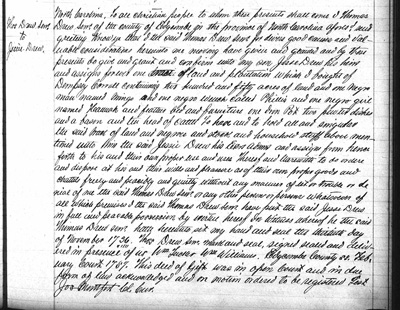 Thos Drew Senr.
to
Jesse Drew
North Carolina. To all christian people to whom these presents shall come I Thomas
Drew Senr of the county of Edgecombe in the province of North Carolina aforesd. send
greeting Knoweth that I the said Thomas Drew Senr for divers good causes and val-
uable considerations hereunto me moving have given and granted and by these
presents do give and grant and confirm unto my son Jesse Drew his heirs
and assigns forever one of land and plantation which I bought of
Dempsey containing two hundred and fifty acres of land and one negro
man named and one negro woman called and one negro girl
named Hannah and feather bed and furniture one Iron Pot two pewter dishes
and a bason and ten head of cattle To have and to hold all and singular
the said of land and negroes and stock and household stuff above men-
tioned unto him the said Jessie Drew his heirs admrs and assigns from hence
forth to his and their own proper use and uses thereof and therewith to do order
and dispose at his and their wills and pleasure as of their own proper goods and
chattles freely and peaceably and quietly without any manner of let or trouble or de
nial of me the said Thomas Drew Senr or any other person or persons whatsoever of
all which premises I the said Thomas Drew Senr have put the said Jesse Drew
in full and peaceable possession by virtue hereof In witness whereof he the said
Thomas Drew Senr hath hereunto set my hand and seal the day
of November 1736. Thos Drew Senr mark and seal, signed sealed and deliv-
ered in presence of us Wm Wm Williams. Edgecombe County ss. Feb-
uary Court 1737. This deed of Gift was in open Court and in due
form of law acknowledged and on motion ordered to be registered Test
Jos Cle Cur.